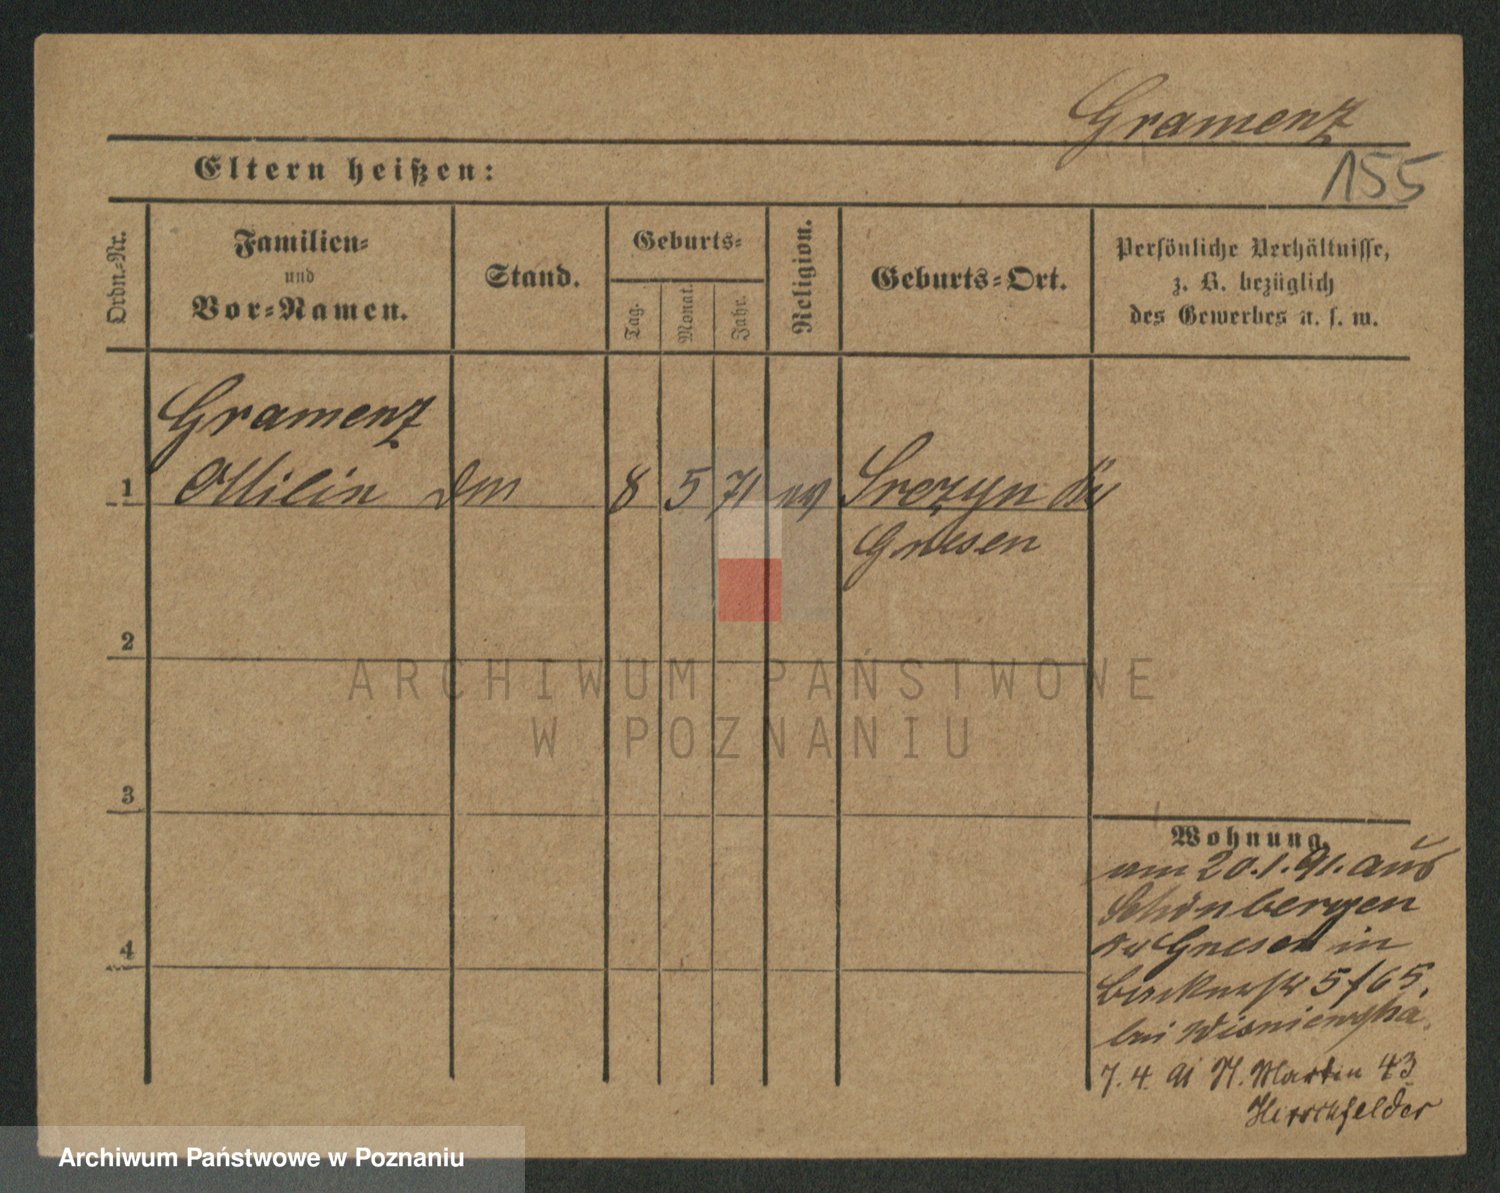 Gramenz
155
Eltern heißen:
Ordn.-Nr.
Familien-
und
Vor-Namen.
Stand.
Geburts-
Tag.
Monat.
Jahr.
Religion.
Geburts-Ort.
Persönliche Verhältnisse,
z. B. bezüglich
des Gewerbes u. s. w.
Gramenz
1 Ottilie 8 5 71 ev
Gnesen
2
ARCHIWUM PAŃSTWOWE
W POZNANIU
3
Wohnung.
am 20.1.91. aus
Schönbergen
Gnesen in
5/65.
bei
4
7. 4. 91 St. Martin 43
Hirschfelder
Archiwum Państwowe w Poznaniu